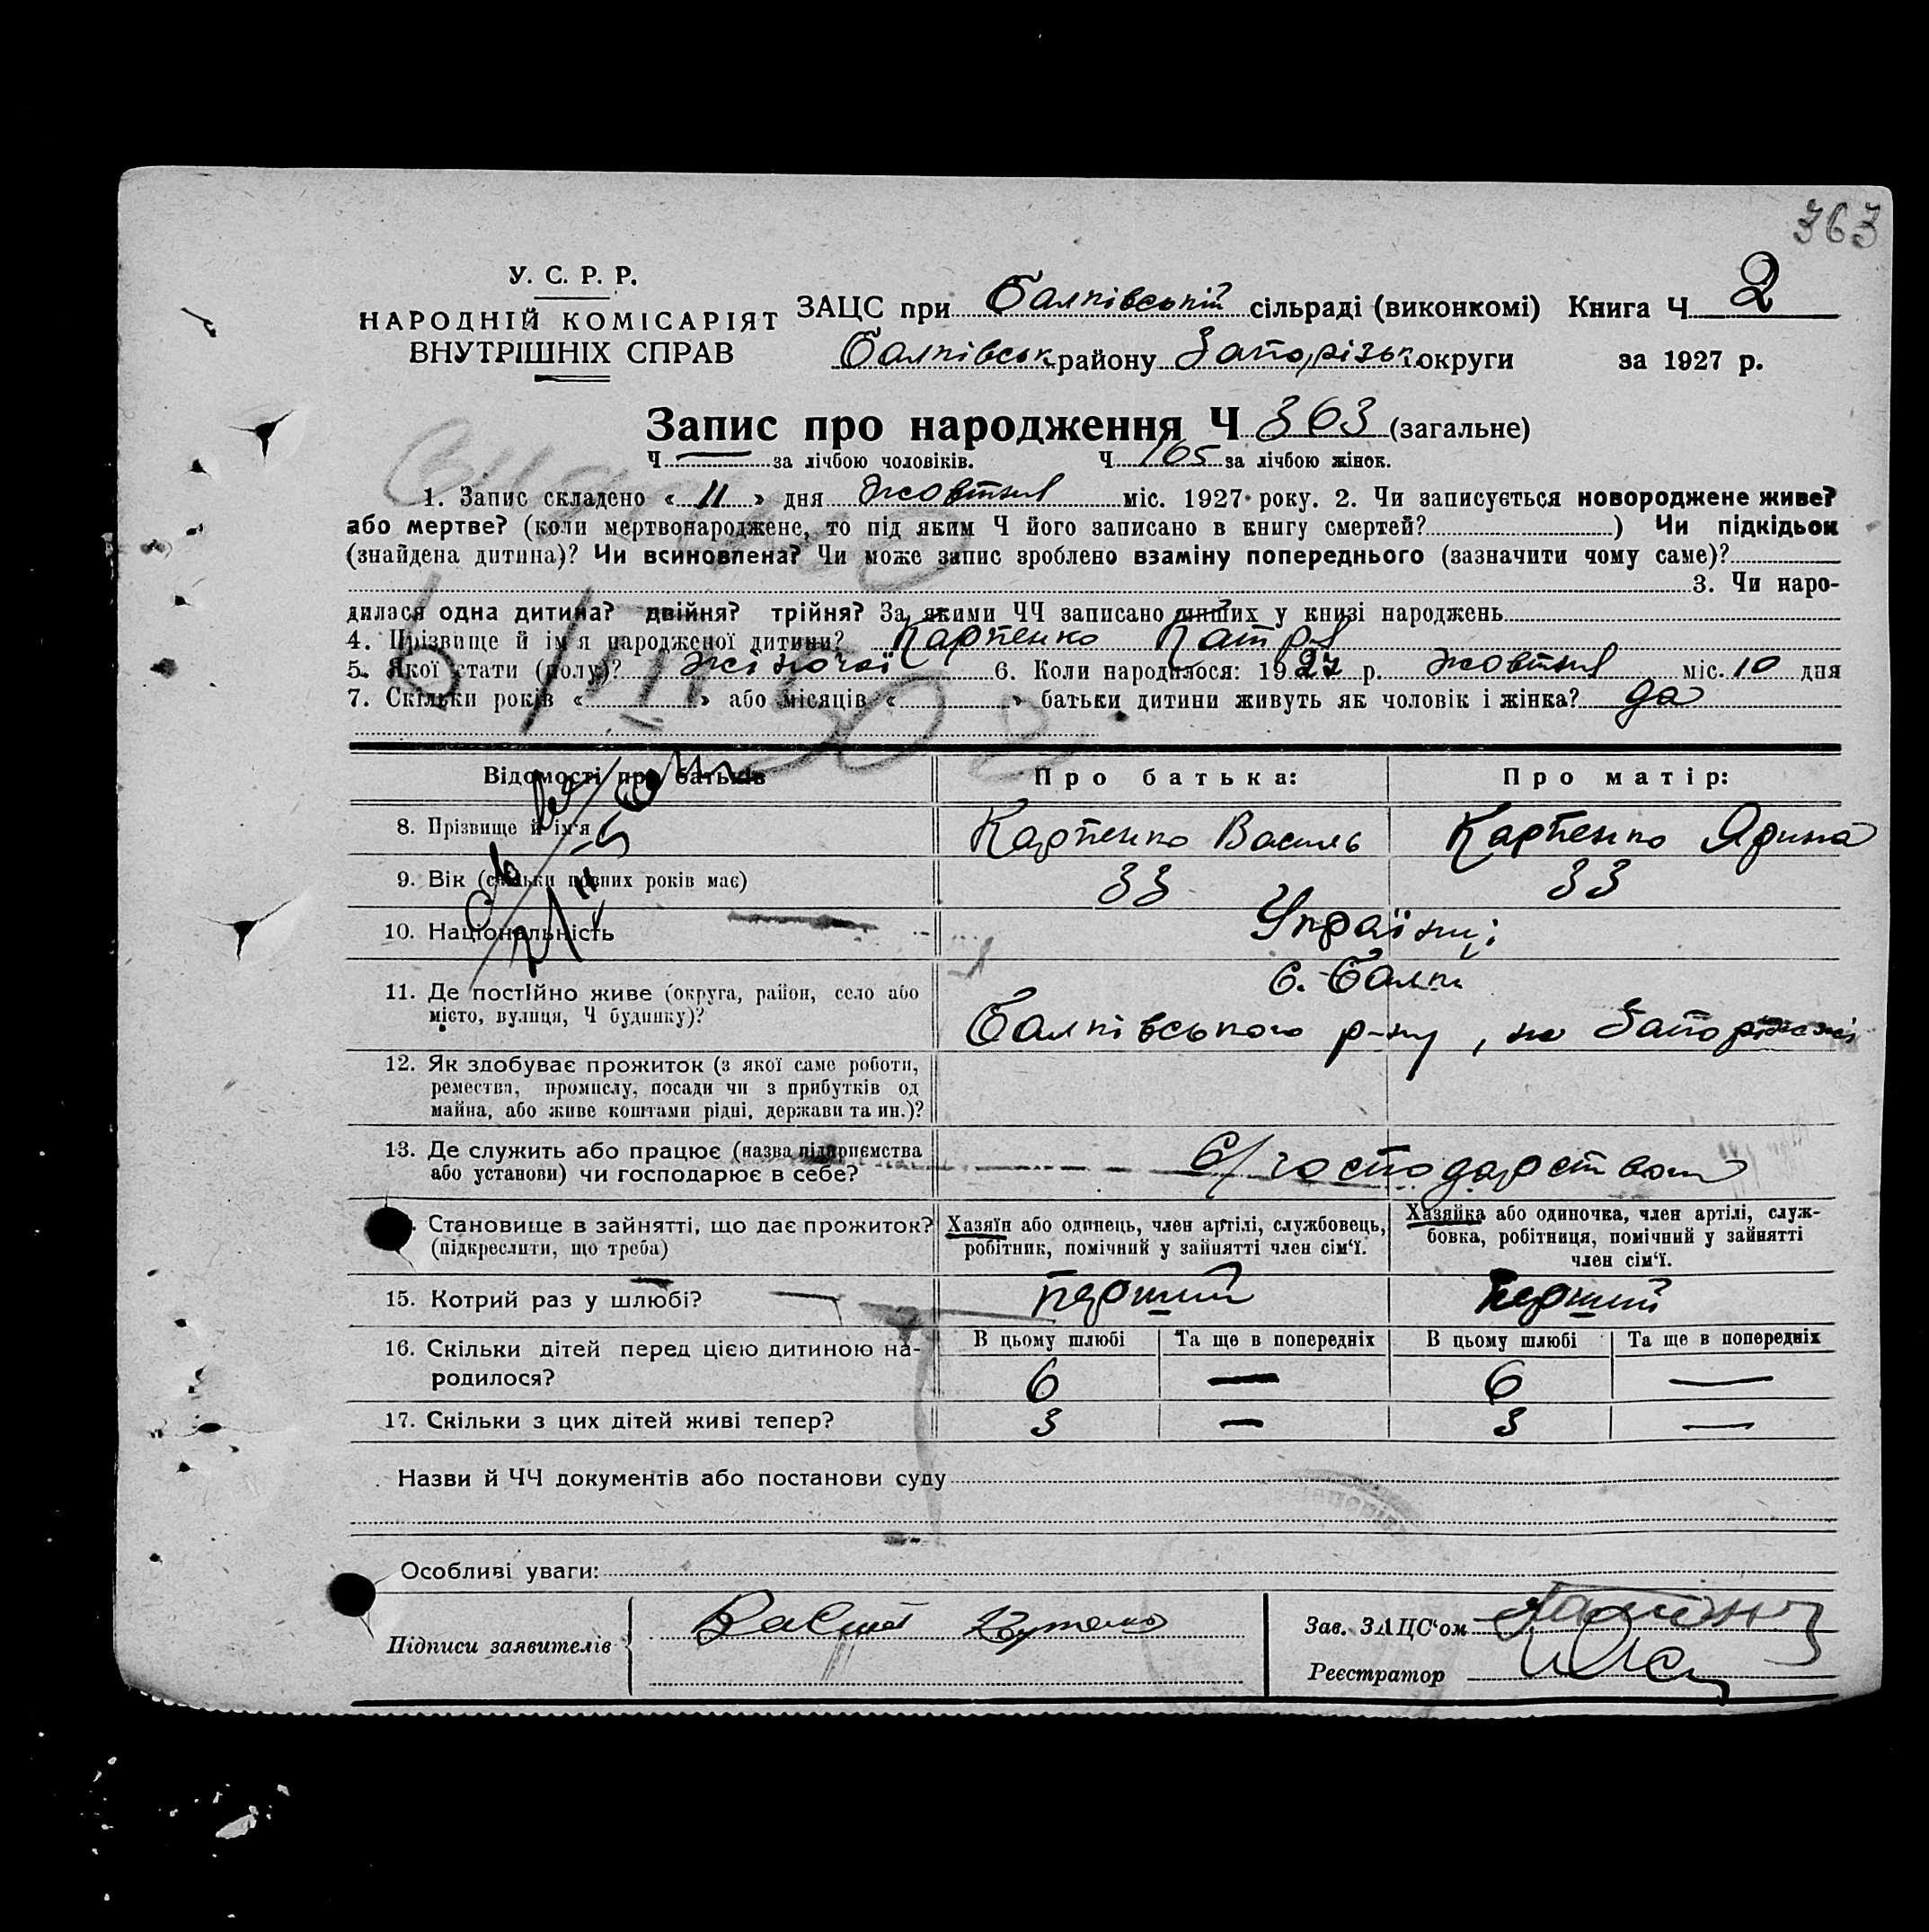 363
У. С. Р. Р.
НАРОДНІЙ КОМІСАРІЯТ
ВНУТРІШНІХ СПРАВ
ЗАЦС при Балківській сільраді (виконкомі) Книга Ч 2
Балківськ району Запорізьк округи за 1927 р.
Запис про народження Ч 363 (загальне)
Ч — за лічбою чоловіків. Ч 165 за лічбою жінок.
1. Запис складено « 11 » дня жовтня міс. 1927 року. 2. Чи записується новороджене живе?
або мертве? (коли мертвонароджене, то під яким Ч його записано в книгу смертей? ) Чи підкідьок
(знайдена дитина)? Чи всиновлена? Чи може запис зроблено взаміну попереднього (зазначити чому саме)?
3. Чи наро-
дилася одна дитина? двійня? трійня? За якими ЧЧ записано инших у книзі народжень
4. Прізвище й ім'я народженої дитини? Карпенко Катря
5. Якої стати (полу)? жіночої 6. Коли народилося: 1927 р. жовтня міс. 10 дня
7. Скільки років « » або місяців « » батьки дитини живуть як чоловік і жінка? да
Відомості про батьків
Про батька:
Про матір:
8. Прізвище й ім'я
Карпенко Василь
Карпенко Ярина
9. Вік (скільки повних років має)
33
33
10. Національність
Українці
11. Де постійно живе (округа, район, село або
місто, вулиця, Ч будинку)?
с. Балки
Балківського р-ну, на Запоріжжі
12. Як здобуває прожиток (з якої саме роботи,
ремества, промислу, посади чи з прибутків од
майна, або живе коштами рідні, держави та ин.)?
13. Де служить або працює (назва підприємства
або установи) чи господарює в себе?
с/господарством
Становище в зайнятті, що дає прожиток?
(підкреслити, що треба)
Хазяїн або одинець, член артілі, службовець,
робітник, помічний у зайнятті член сім'ї.
Хазяйка або одиночка, член артілі, служ-
бовка, робітниця, помічний у зайнятті
член сім'ї.
15. Котрий раз у шлюбі?
перший
перший
16. Скільки дітей перед цією дитиною на-
родилося?
В цьому шлюбі
Та ще в попередніх
В цьому шлюбі
Та ще в попередніх
6 — 6 —
17. Скільки з цих дітей живі тепер?
3 — 3 —
Назви й ЧЧ документів або постанови суду
Особливі уваги:
Підписи заявителів
Зав. ЗАЦС'ом
Реєстратор